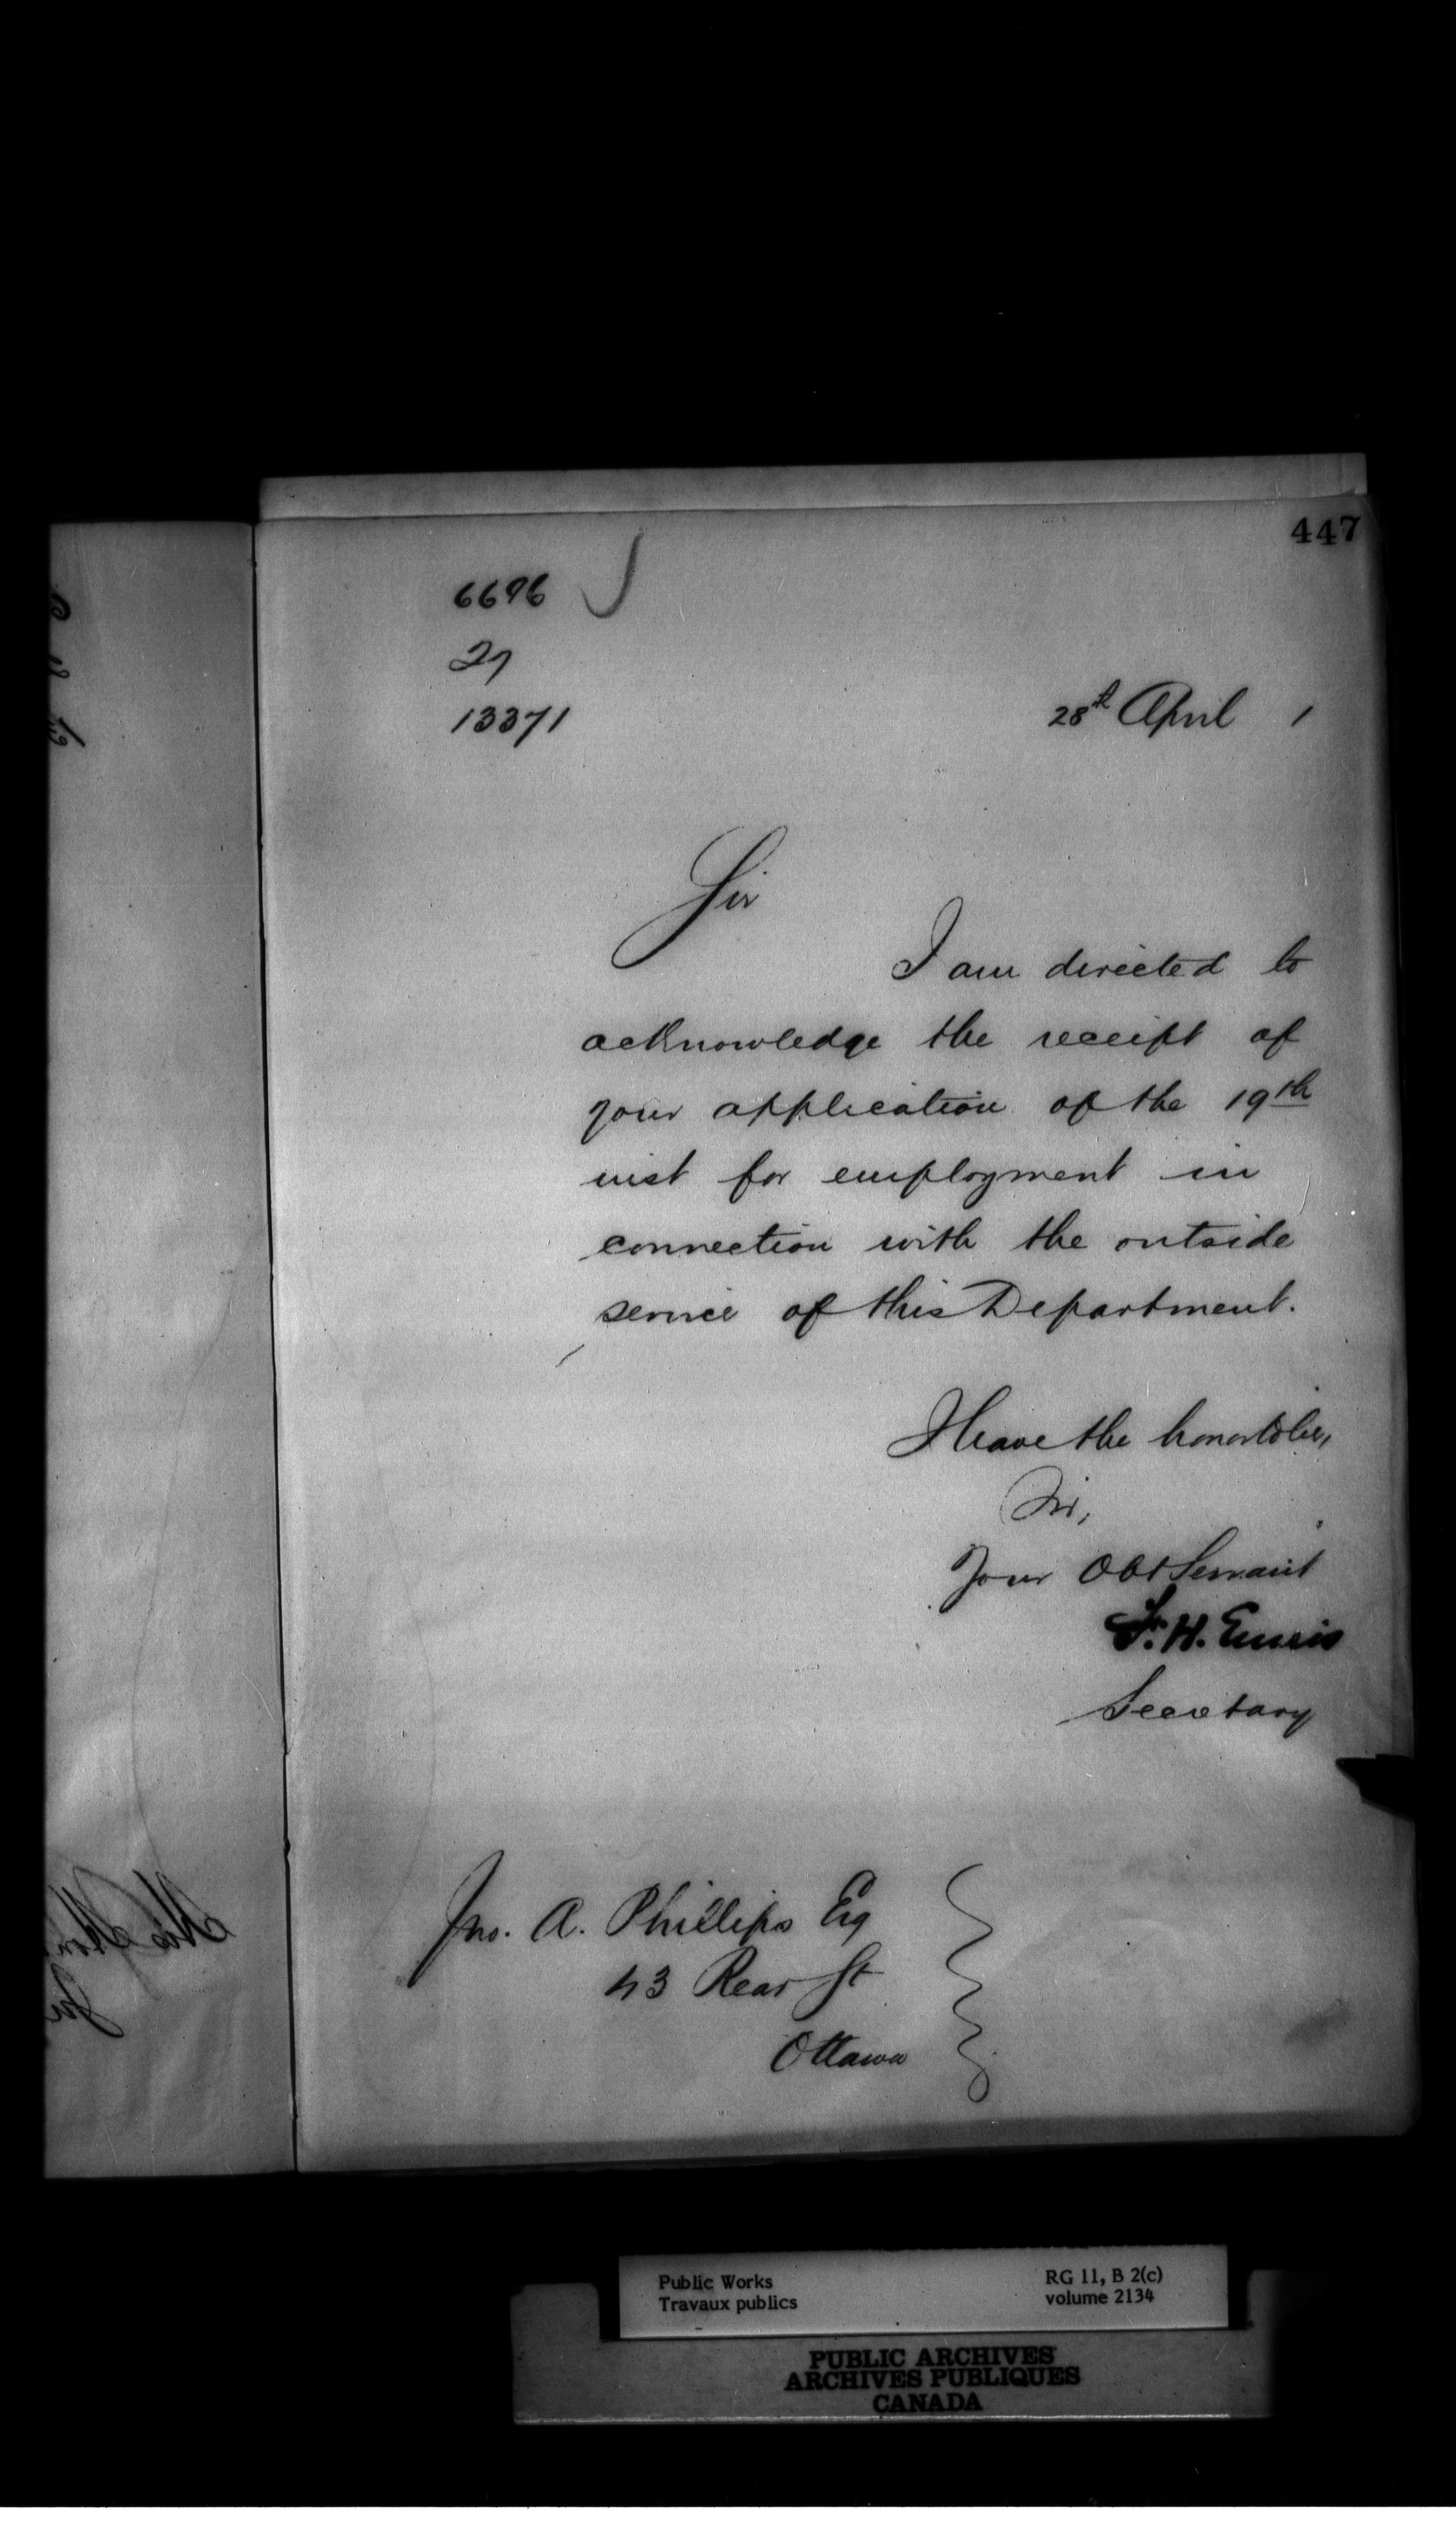 447
6696
27
13371
28th April 1
Sir
I am directed to
acknowledge the receipt of
your application of the 19th
inst for employment in
connection with the outside
service of this Department.
I have the honor to be,
Sir,
Your Obt Servant
F. H. Ennis
Secretary
Jno. A. Phillips Esq
43 Rear St
Ottawa
Public Works
Travaux publics
RG 11, B 2(c)
volume 2134
PUBLIC ARCHIVES
ARCHIVES PUBLIQUES
CANADA